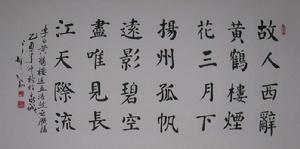 故人西辭
黃鶴樓煙
花三月下
揚州孤帆
遠影碧空
盡唯見長
江天際流
李白黃鶴樓送孟浩然之廣陵